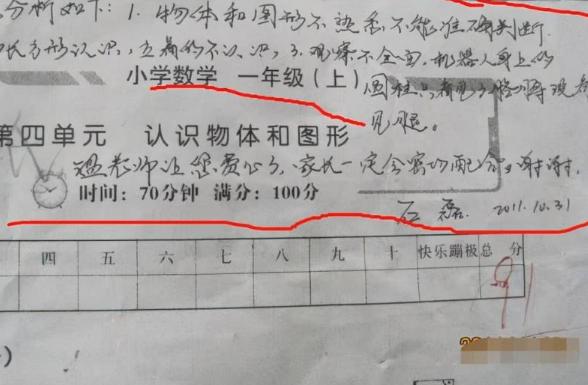 分析如下：1. 物体和图形不熟悉不能准确判断
长方形认识，立着的不认识，3. 观察不全面，机器人身上的
小学数学 一年级（上）
圆柱只看见了胳膊没看
见腿。
第四单元 认识物体和图形
温老师让您费心了，家长一定会密切配合。谢谢。
时间：70分钟 满分：100分
石磊 2011.10.31
四 五 六 七 八 九 十 快乐蹦极 总分
91